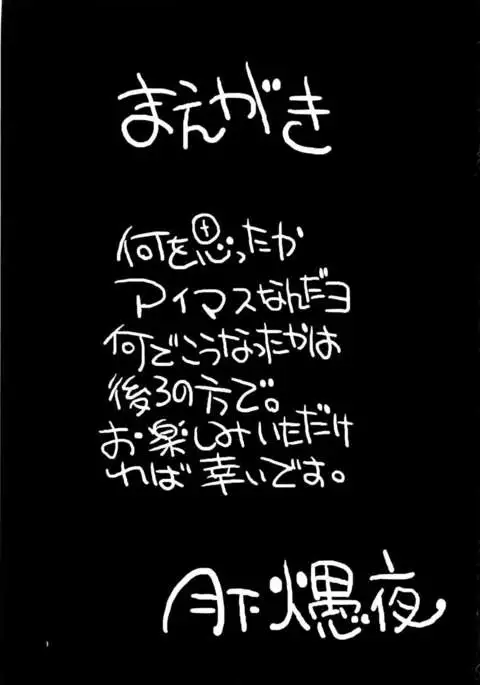 まえがき
何を思ったか
アイマスなんだヨ
何でこうなったかは
後ろの方で。
お楽しみいただけ
れば幸いです。
月下燻夜